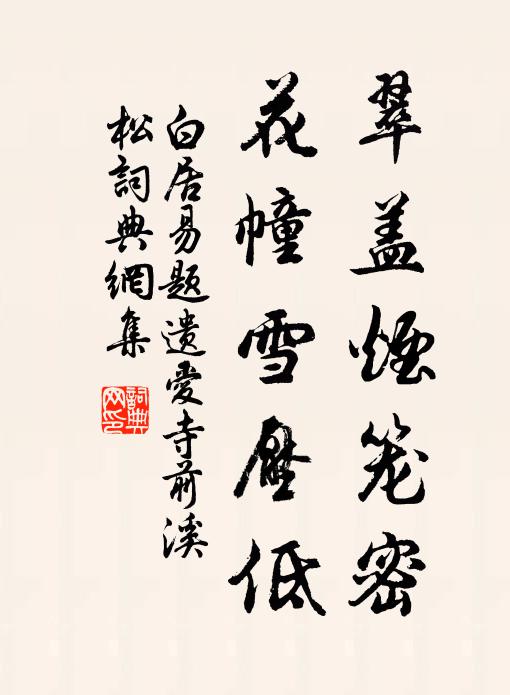 翠盖煙笼密
花幢雪壓低
白居易题遗愛寺前溪
松詞典網集
詞典
网印